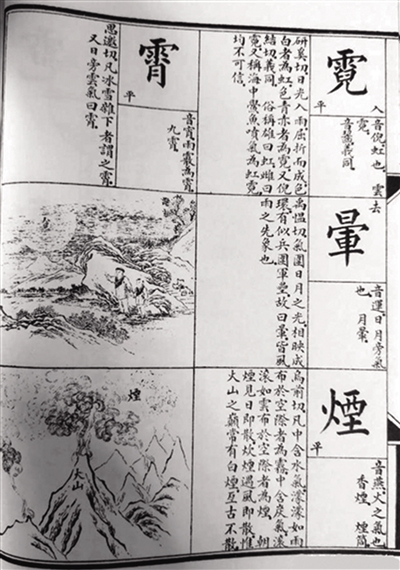 霓
平
入
音倪虹也 雲
霓
音齧義同
研奚切日光入雨屈折而成色
白者為虹色青赤者為霓又倪
結切義同 俗稱雄曰虹雌曰
霓又稱海中鱟魚噴氣為虹霓
均不可信
霄
平
音宵雨霰為霄
九霄
思邀切凡冰雪雜下者謂之霄
又日旁雲氣曰霄
暈
去
音運日月旁氣
也 月暈
禹慍切氣圍日月之光相映成
環有似兵圍軍壘故曰暈皆風
雨之先象也
煙
平
音燕火之氣也
香煙 煙筒
烏前切凡中含水氣濛濛如雨
布於空際者為霧中含炭氣滾
滾如雲布於空際者為煙 朝
煙見日即散炊煙遇風即散惟
火山之巔常有白煙亙古不散
煙
火山